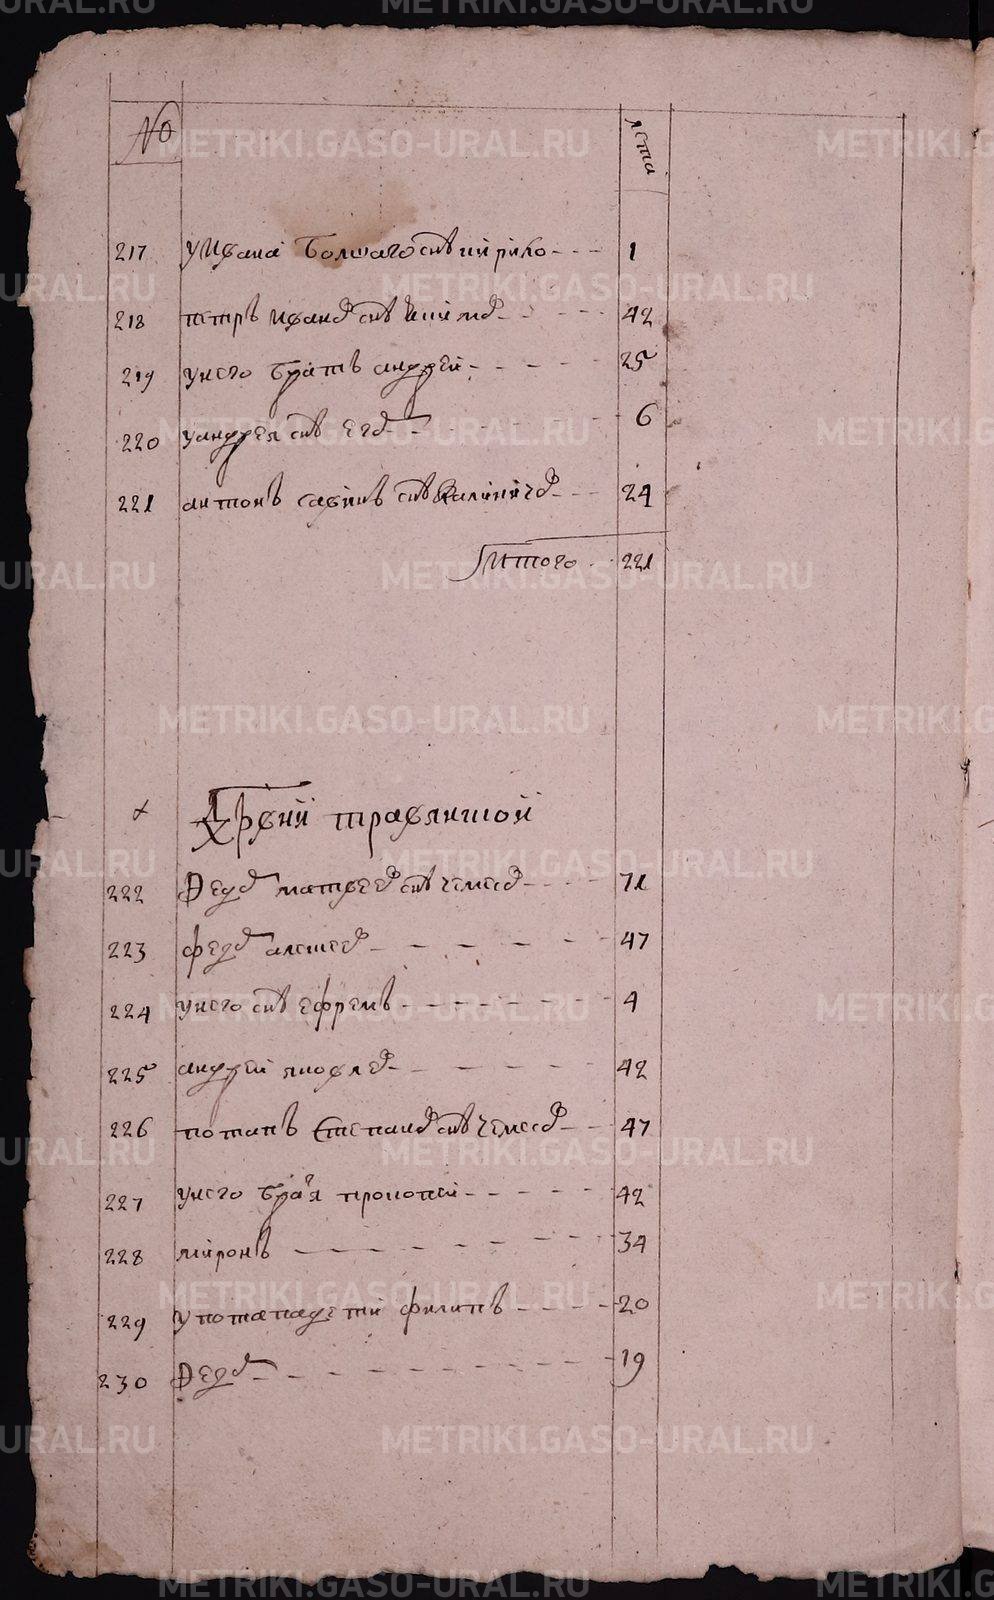 METRIKI.GASO-URAL.RU
№ лета
217 у Ивана болшаго снъ кирило 1
218 петръ Иванов снъ 42
219 у него братъ андрей 25
220 у андрея снъ егор 6
221 антонъ савинъ снъ 24
Итого 221
Дрвни травянной
222 Федор матвеев снъ чемесов 71
223 федор алексеев 47
224 у него снъ ефремъ 4
225 андрей яковлев 42
226 потапъ Степанов снъ чемесов 47
227 у него братя прокопей 42
228 миронъ 34
229 у потапа дети филипъ 20
230 Федор 19